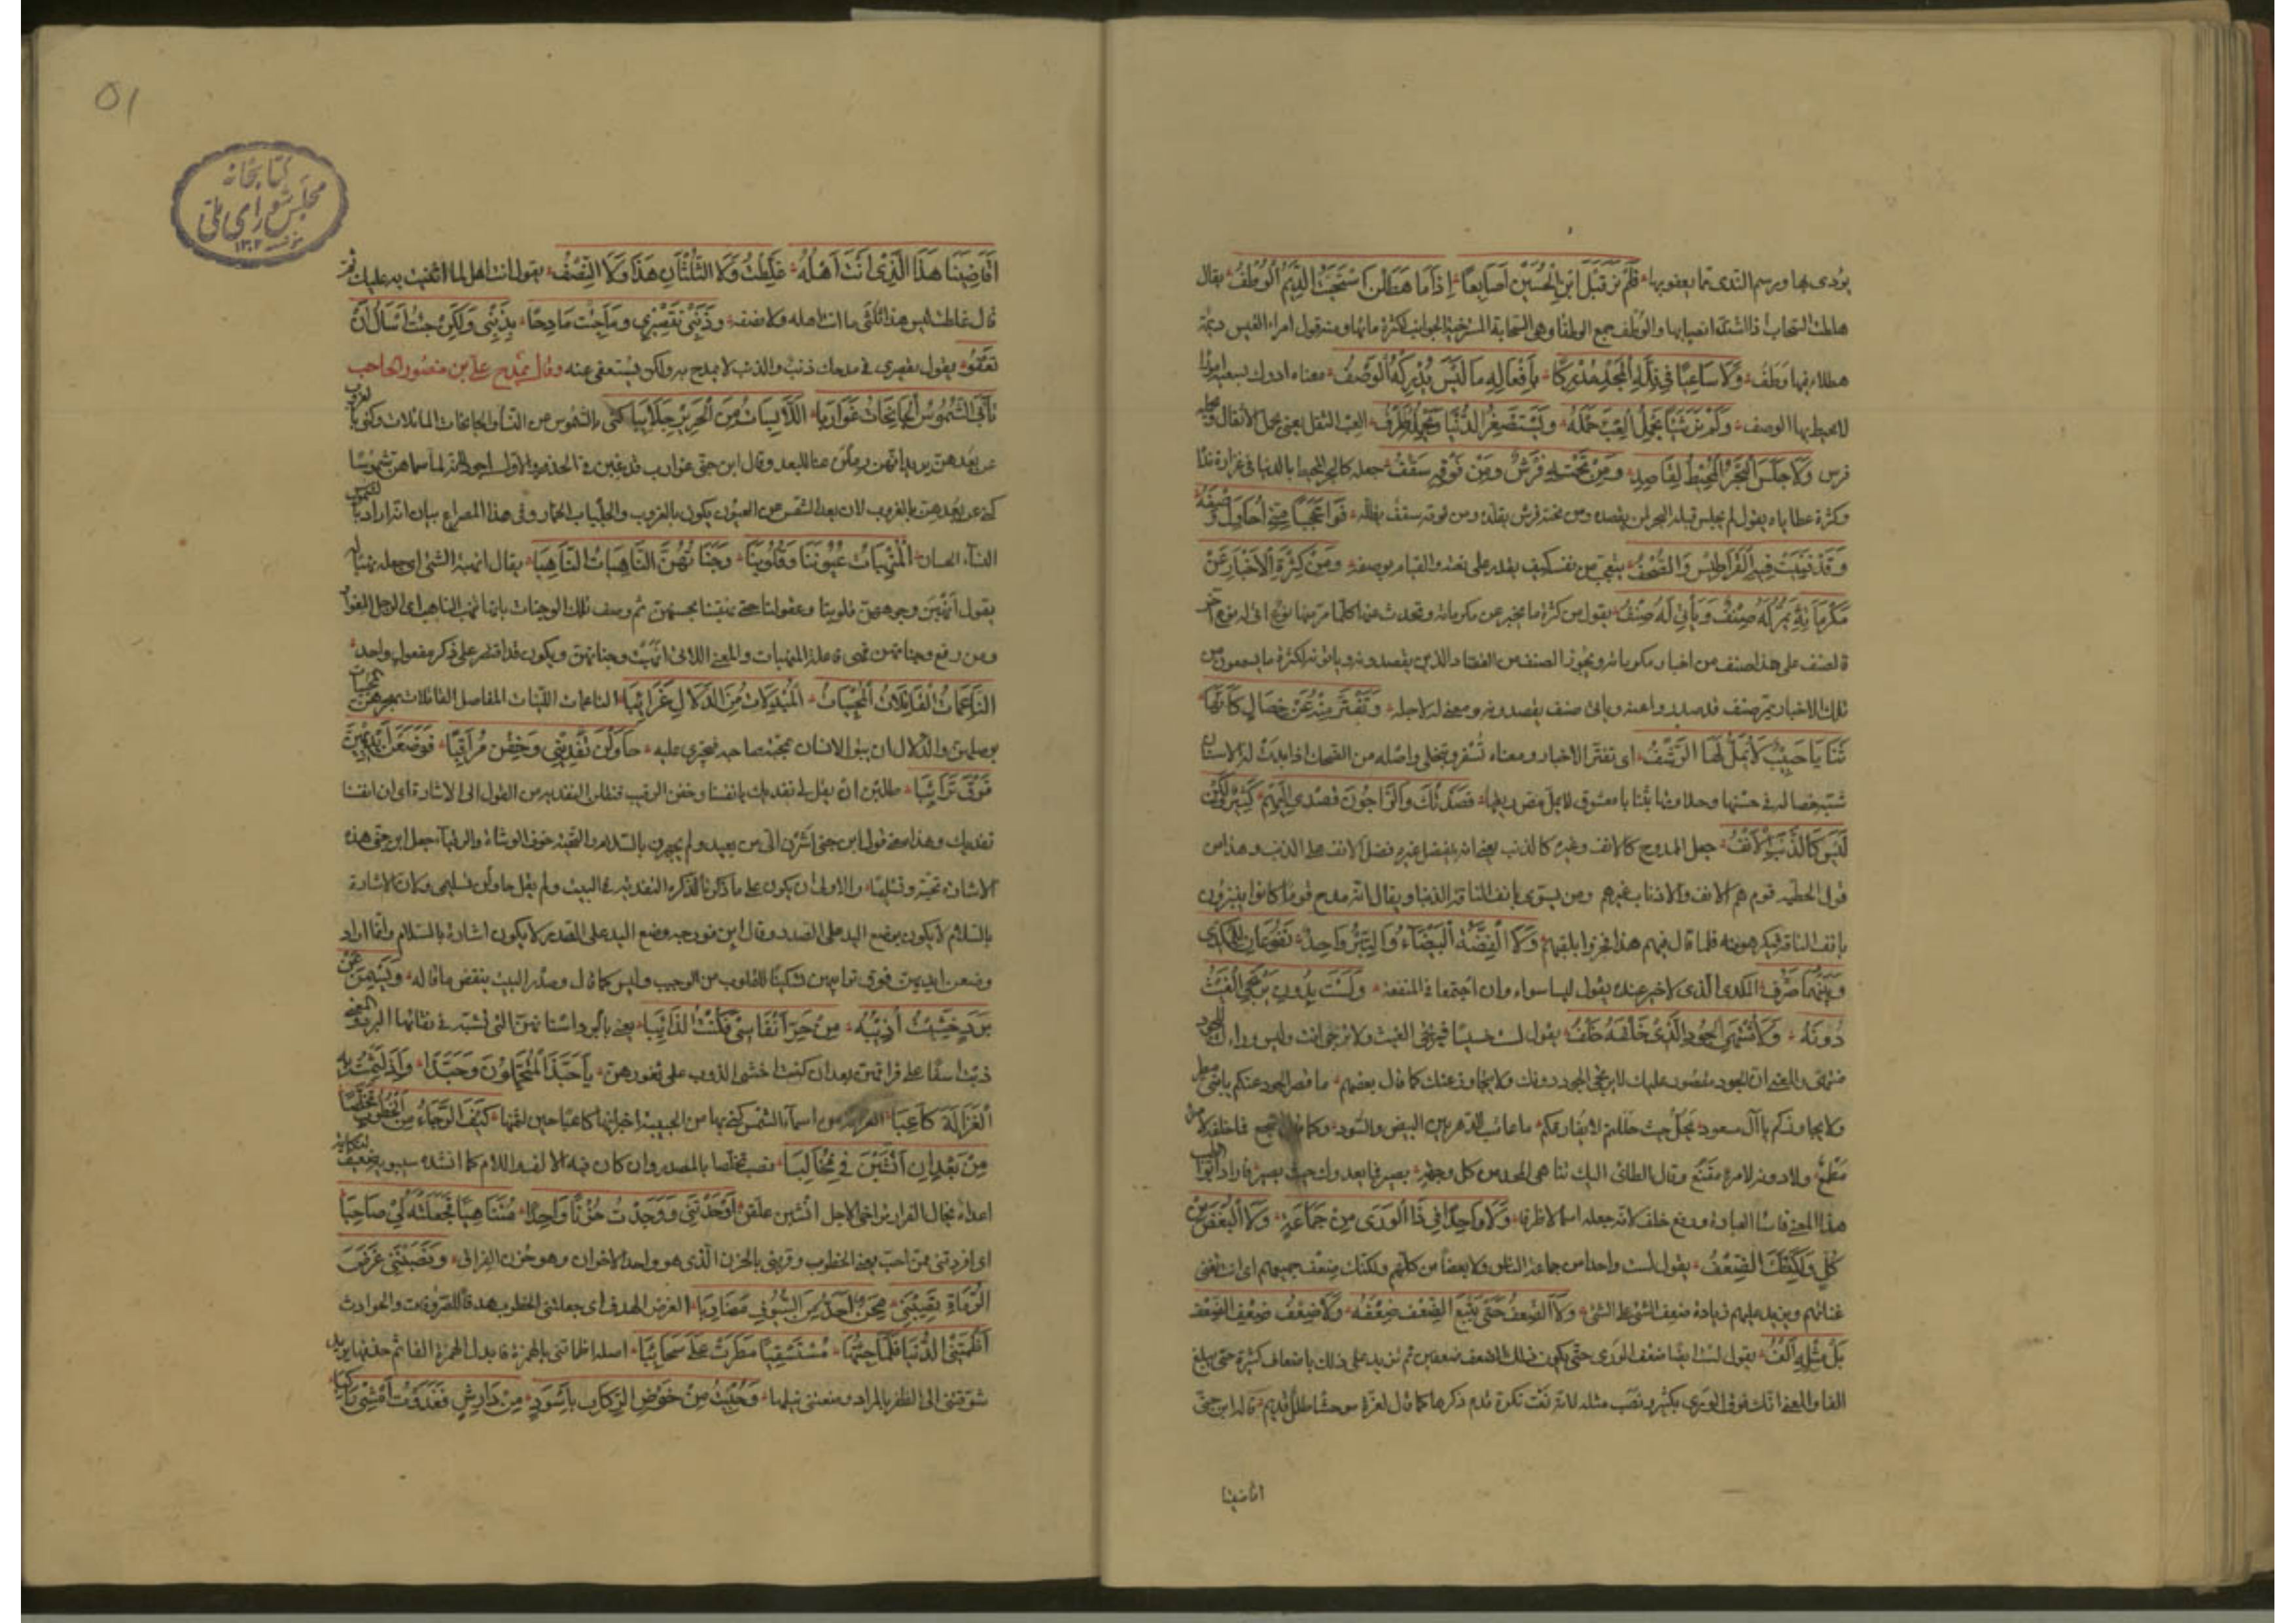 يؤدى بها ويرسم الندى مما يعفو بها فلم نر قبل ابن الحسين اصابعا اذا ما هطلن استحيت الديم الوطف يقال
هطلت السحاب اذا اشتد انصبابها والوطف جمع الوطفا وهى السحابة المسترخية الجوانب لكثرة مائها ومنه قول امراء القيس ديمة
هطلاء فيها وطف ولا ساعيا فى قلة المجد مدركا بافعاله ما ليس يدركه الوصف معناه ادرك بسعيه امرا
لا يحيط بها الوصف ولم نر شيئا يحمل العبء حمله ويستصغر الدنيا ويحمله طرف العبء الثقل يعنى يحمل الاثقال ويحمله
فرس ولا جلس البحر المحيط لقاصد ومن تحته فرش ومن فوقه سقف جعله كالبحر المحيط بالدنيا فى غزارة ندا
وكثرة عطاياه يقول لم يجلس قبله البحر لمن يقصده ومن تحته فرش يقله ومن فوقه سقف يظله فوا عجبا منى احاول وصفه
وقد فنيت فيه القراطيس والصحف يتعجب من نفسه كيف يقدر على نعته والقيام بوصفه ومن كثرة الاخبار عن
مكرماته يمر له صنف وياتى له صنف يقول من كثرة ما يخبر عن مكرماته وتحدث عنها كلما مر منها نوع اتى له نوع آخر
فالصنف على هذا صنف من اخبار مكرماته ويجوز الصنف من القصاد الذين يقصدونه وياتونه لكثرة ما يسمعون من
تلك الاخبار يمر صنف قد صدروا عنه وياتى صنف يقصدونه ومعنى له لاجله وتفتر منه عن خصال كانها
ثنايا حبيب لا يمل لها الرشف اى تفتر الاخبار ومعناه تسفر وتنجلى واصله من الضحك اذا بدت له الاسنان
شبه خصاله فى حسنها وحلاوتها بثنايا معشوق لا يمل مص ريقها قصدتك والراجون قصدى اليهم كثير ولكن
ليس كالذنب الانف جعل الممدوح كالانف وغيره كالذنب يعنى انه يفضل غيره فضل الانف على الذنب وهذا من
قول الحطيه قوم هم الانف والاذناب غيرهم ومن يسوى بانف الناقة الذنبا ويقال انه مدح قوما كانوا ينبزون
بانف الناقة فيكرهونه فلما قال فيهم هذا فخروا بلقبهم ولا الفضة البيضاء والتبر واحد نفوعان للمكدى
وبينهما صرف المكدى الذى لا خير عنده يقول ليسا سواء وان اجتمعا فى المنفعة ولست بدون يرتجى الغيث
دونه ولا منتهى الجود الذى خلفه خلف يقول لست خسيسا فيرتجى الغيث ولا ترتجى انت وليس وراءك للجود
منتهى والمعنى ان الجود مقصور عليك لا يرتجى الجود دونك ولا يجاوز عنك كما قال بعضهم ما قصر الجود عنكم يا بنى مطر
ولا يجاوزكم يا آل مسعود يحل حيث حللتم لا يفارقكم ما عاقب الدهر بين البيض والسود وكما قال اشجع فما خلفه لامرئ
مطمع ولا دونه لامرئ مقنع وقال الطائى اليك تناهى المجد من كل وجهة يصير فما يعدوك حيث يصير فاراد ابو الطيب
هذا المعنى فاساء العبارة ورفع خلف لانه جعله اسما لا ظرفا ولا واحدا فى ذا الورى من جماعة ولا البعض من
كل ولكنك الضعف يقول لست واحدا من جماعة الناس ولا بعضا من كلهم ولكنك ضعف جميعهم اى انت تغنى
غنائهم وتزيد عليهم زيادة ضعف الشئ على الشئ ولا الضعف حتى يتبع الضعف ضعفه ولا ضعف ضعف الضعف
بل مثله الف يقول لست ايضا ضعف الورى حتى يكون ذلك الضعف ضعفين ثم تزيد على ذلك باضعاف كثيرة حتى يبلغ
الفا والمعنى انك فوق الورى بكثير ونصب مثله لانه نعت نكرة قدم ذكرها كما قال لعزة موحشا طلل قديم قاله ابن جنى
اقاضينا
اقاضينا هذا الذى انت اهله غلطت ولا الثلثان هذا ولا النصف يقول انت اهل لما اثنيت به عليك ثم
قال غلطت ليس هذا ثلثى ما انت اهله ولا نصفه وذنبى تقصيرى وما جئت مادحا بذنبى ولكن جئت اسال ان
تعفو يقول تقصيرى فى مدحك ذنب والذنب لا يمدح به ولكن يستعفى عنه وقال يمدح على بن منصور الحاجب
بابى الشموس الجانحات غواربا اللابسات من الحرير جلاببا كنى بالشموس عن النساء والجانحات المائلات وكنى بالغروب
عن بعدهن يريد انهن رملن عنا للبعد وقال ابن جنى غوارب قد غبن فى الخدور والاول اجود لانه لما سماهن شموسا
كنى عن بعدهن بالغروب لان بعد الشمس عن العيون يكون بالغروب والجلباب الخمار وفى هذا المصراع بيان انه اراد بالشموس
النساء الحسان المنهبات عيوننا وقلوبنا وجناتهن الناهبات الناهبا يقال انهبه الشئ اى جعله نهبا له
يقول انهبن وجوههن قلوبنا وعقولنا حتى نهبنا بحسنهن ثم وصف تلك الوجنات بانها تنهب الناهب اى الرجل المغوار
ومن رفع وجناتهن فهى فاعلة المنهبات والمعنى اللاتى انهبت وجناتهن ويكون قد اقتصر على ذكر مفعول واحد
الناعمات القاتلات المحييات المبديات من الدلال غرائبا الناعمات اللينات المفاصل القاتلات بهجرهن المحييات
بوصلهن والدلال ان يثق الانسان بمحبة صاحبه فيجترى عليه حاولن تفديتى وخفن مراقبا فوضعن ايديهن
فوق ترائبا طلبن ان يقلن لى نفديك بانفسنا وخفن الرقيب فنقلن التفدية من القول الى الاشارة اى ان انفسنا
تفديك وهذا معنى قول ابن جنى اشرن الى من بعيد ولم يجهرن بالسلام والتحية خوف الوشاة والرقباء جعل ابن جنى هذه
الاشارة تحية وتسليما والاولى ان يكون على ما ذكرنا لذكره التفدية فى البيت ولم يقل حاولن تسليمى ولان الاشارة
بالسلام لا يكون بوضع اليد على الصدر وقال ابن فورجه وضع اليد على الصدر لا يكون اشارة بالسلام وانما اراد
وضعن ايديهن فوق ترائبهن تسكينا للقلوب من الوجيب وليس كما قال وصدر البيت ينقض ما قاله وبسمن عن
برد خشيت اذيبه من حر انفاسى فكنت الذائبا يعنى بالبرد اسنانهن التى تشبه فى نقائها البرد والمعنى
ذبت اسفا على فراقهن بعد ان كنت اخشى الذوب على ثغورهن يا حبذا المتحملون وحبذا واد لثمت به
الغزالة كاعبا الغزالة من اسماء الشمس كنى بها عن الحبيبة اخبر انها كاعبا حين لثمها كيف الرجاء من الخطوب تخلصا
من بعد ان انشبن فى مخالبا نصب تخلصا بالمصدر وان كان فيه الالف واللام كما انشده سيبويه ضعيف النكاية
اعداءه يخال الفرار يراخى الاجل انشبن علقن اوحدننى ووجدت حزنا واحدا متناهيا فجعلنه لى صاحبا
اى افردتنى عمن احب يعنى الخطوب وقرنتنى بالحزن الذى هو واحد الاحزان وهو حزن الفراق ونصبننى غرض
الرماة تصيبنى محن احد من السيوف مضاربا الغرض الهدف اى جعلتنى الخطوب هدفا للصروف والحوادث
اظمتنى الدنيا فلما جئتها مستسقيا مطرت على سحائبا اصله اظماتنى بالهمزة فابدل الهمزة الفا ثم حذفها يريد
شوقتنى الى الظفر بالمراد ومنعتنى نيلها وحبيت من خوص الركاب باسود من دارش فغدوت امشى راكبا
٥١
كتابخانه
مجلس شوراى ملى